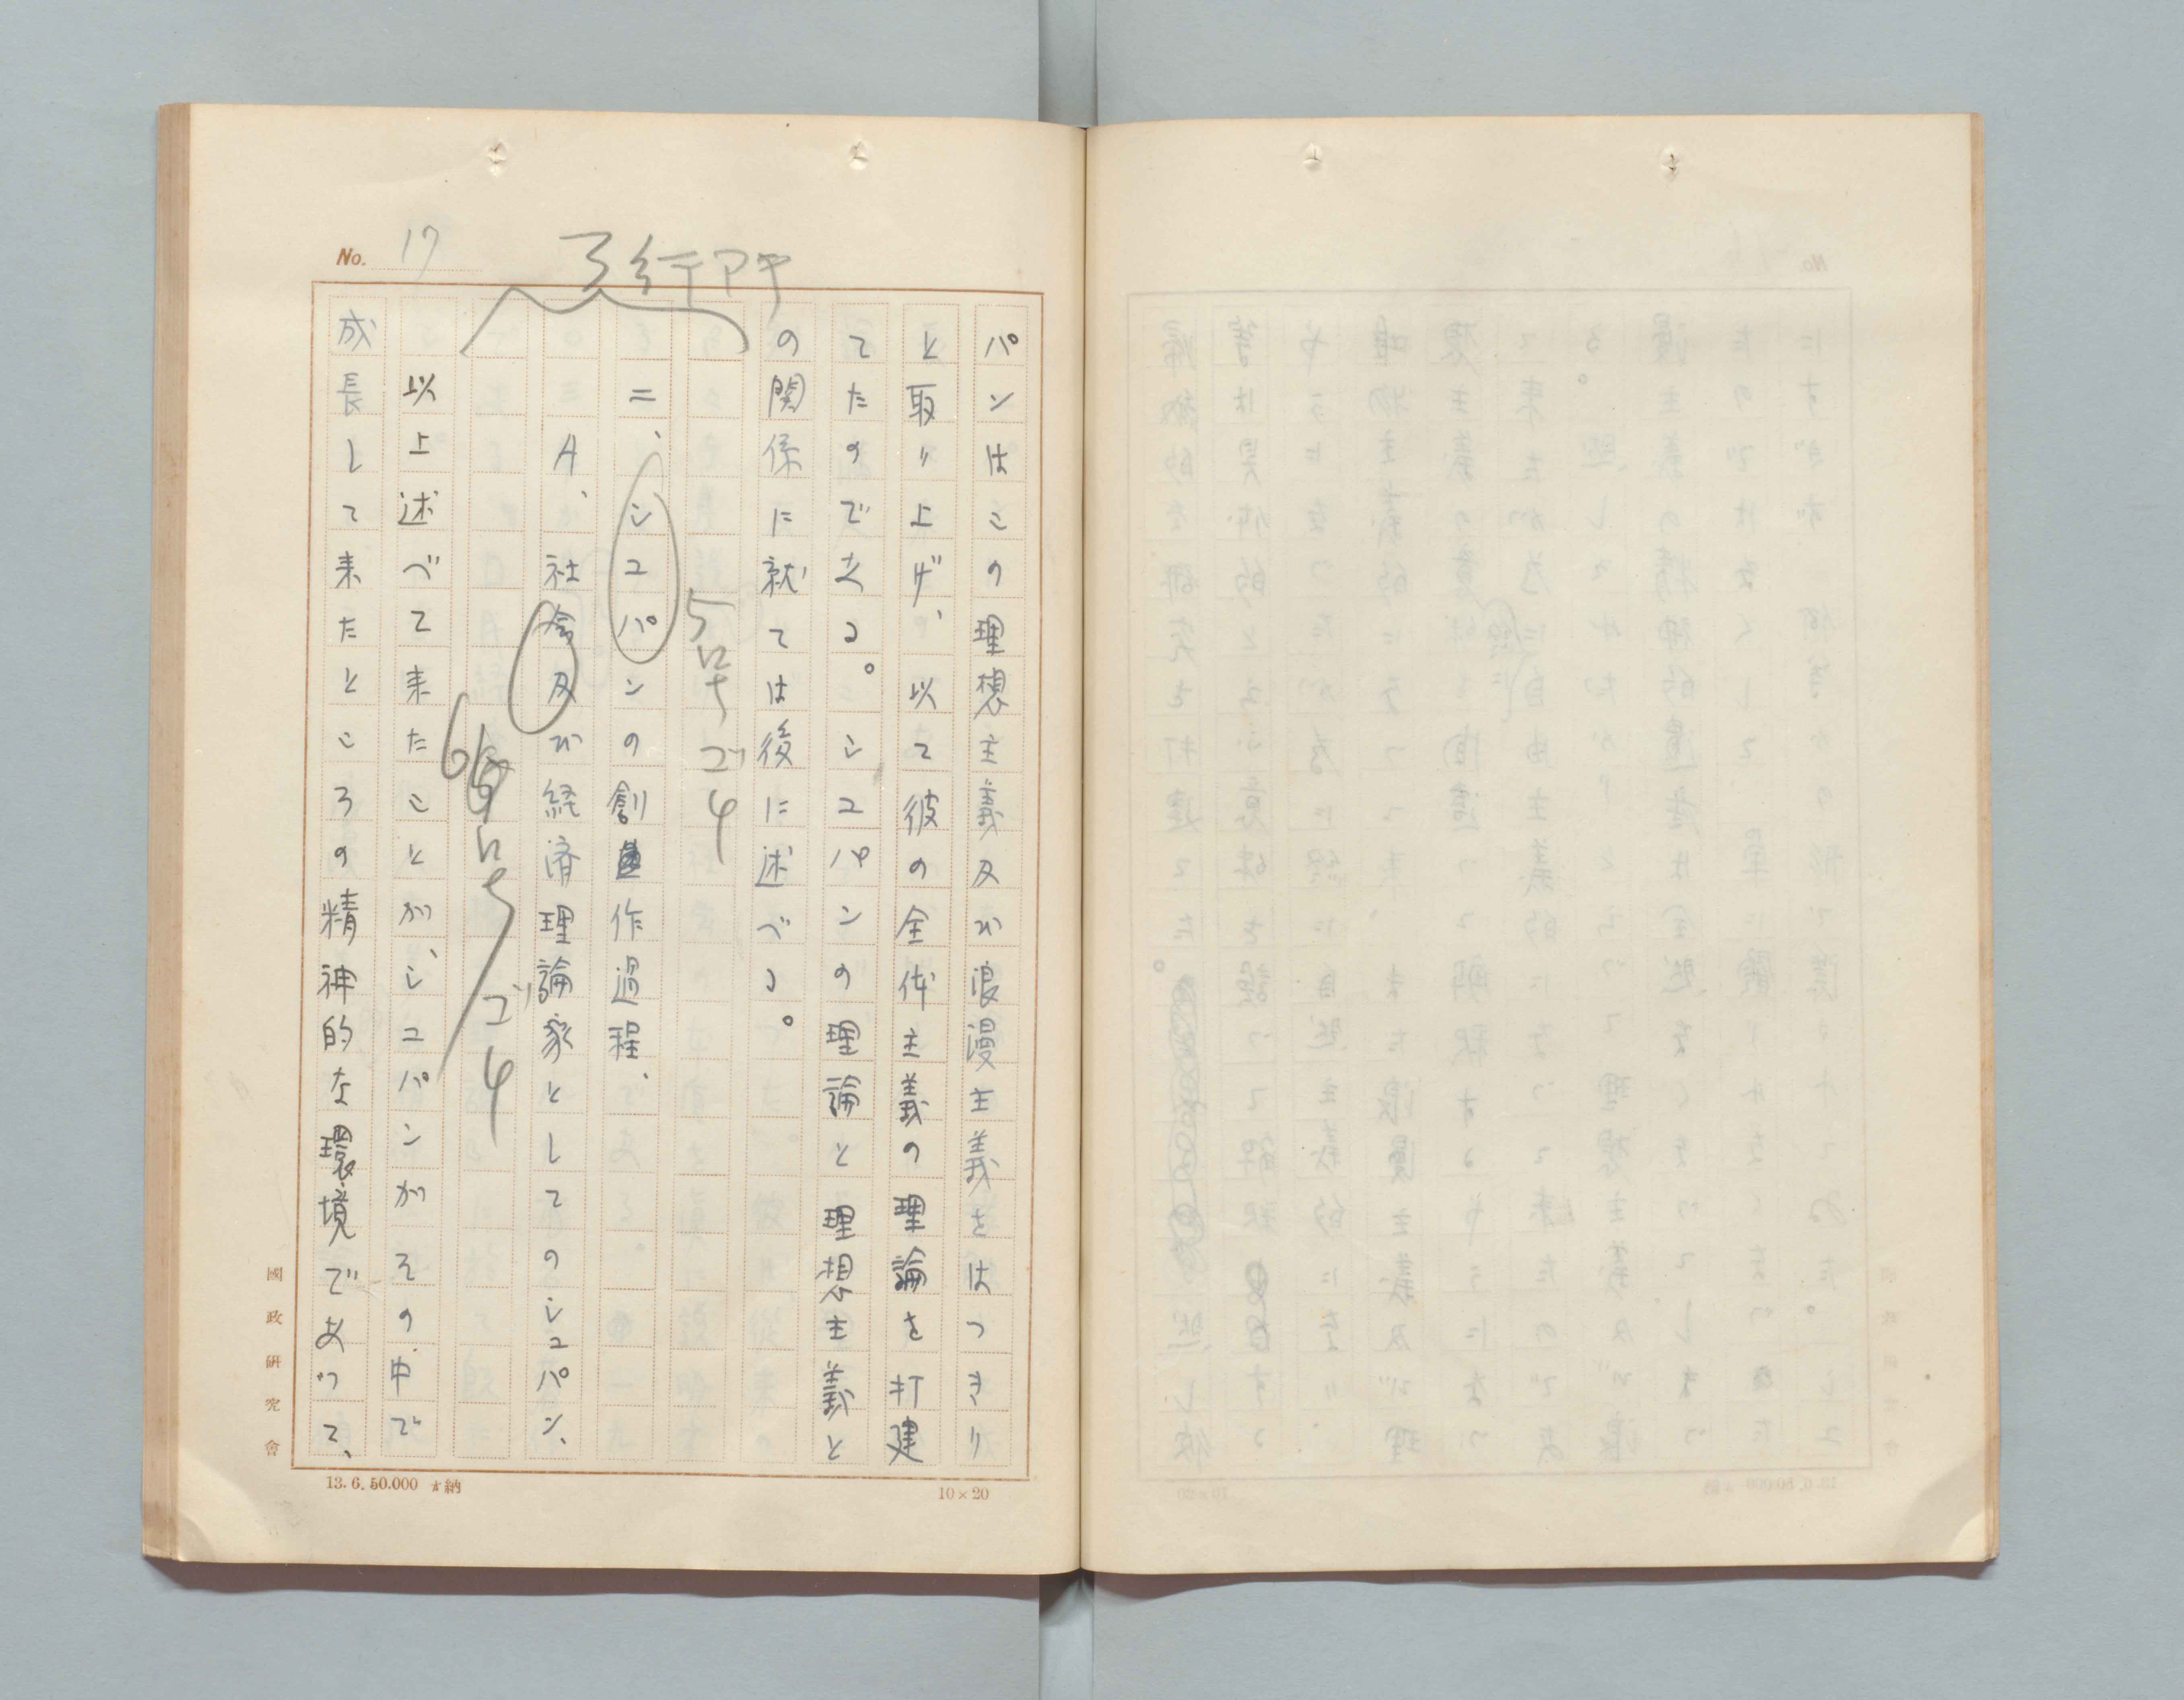 No. 17
3行アキ
パンはこの理想主義及び浪漫主義をはつきり
と取り上げ、以て彼の全体主義の理論を打建
てたのである。シユパンの理論と理想主義と
の関係に就ては後に述べる。
5号ゴ4
二、シユパンの創作過程、
A、社会及び経済理論家としてのシユパン、
ゴ4
以上述べて来たことが、シユパンがその中で
成長して来たところの精神的な環境であつて、
國政研究會
13.6.50.000 納
10×20